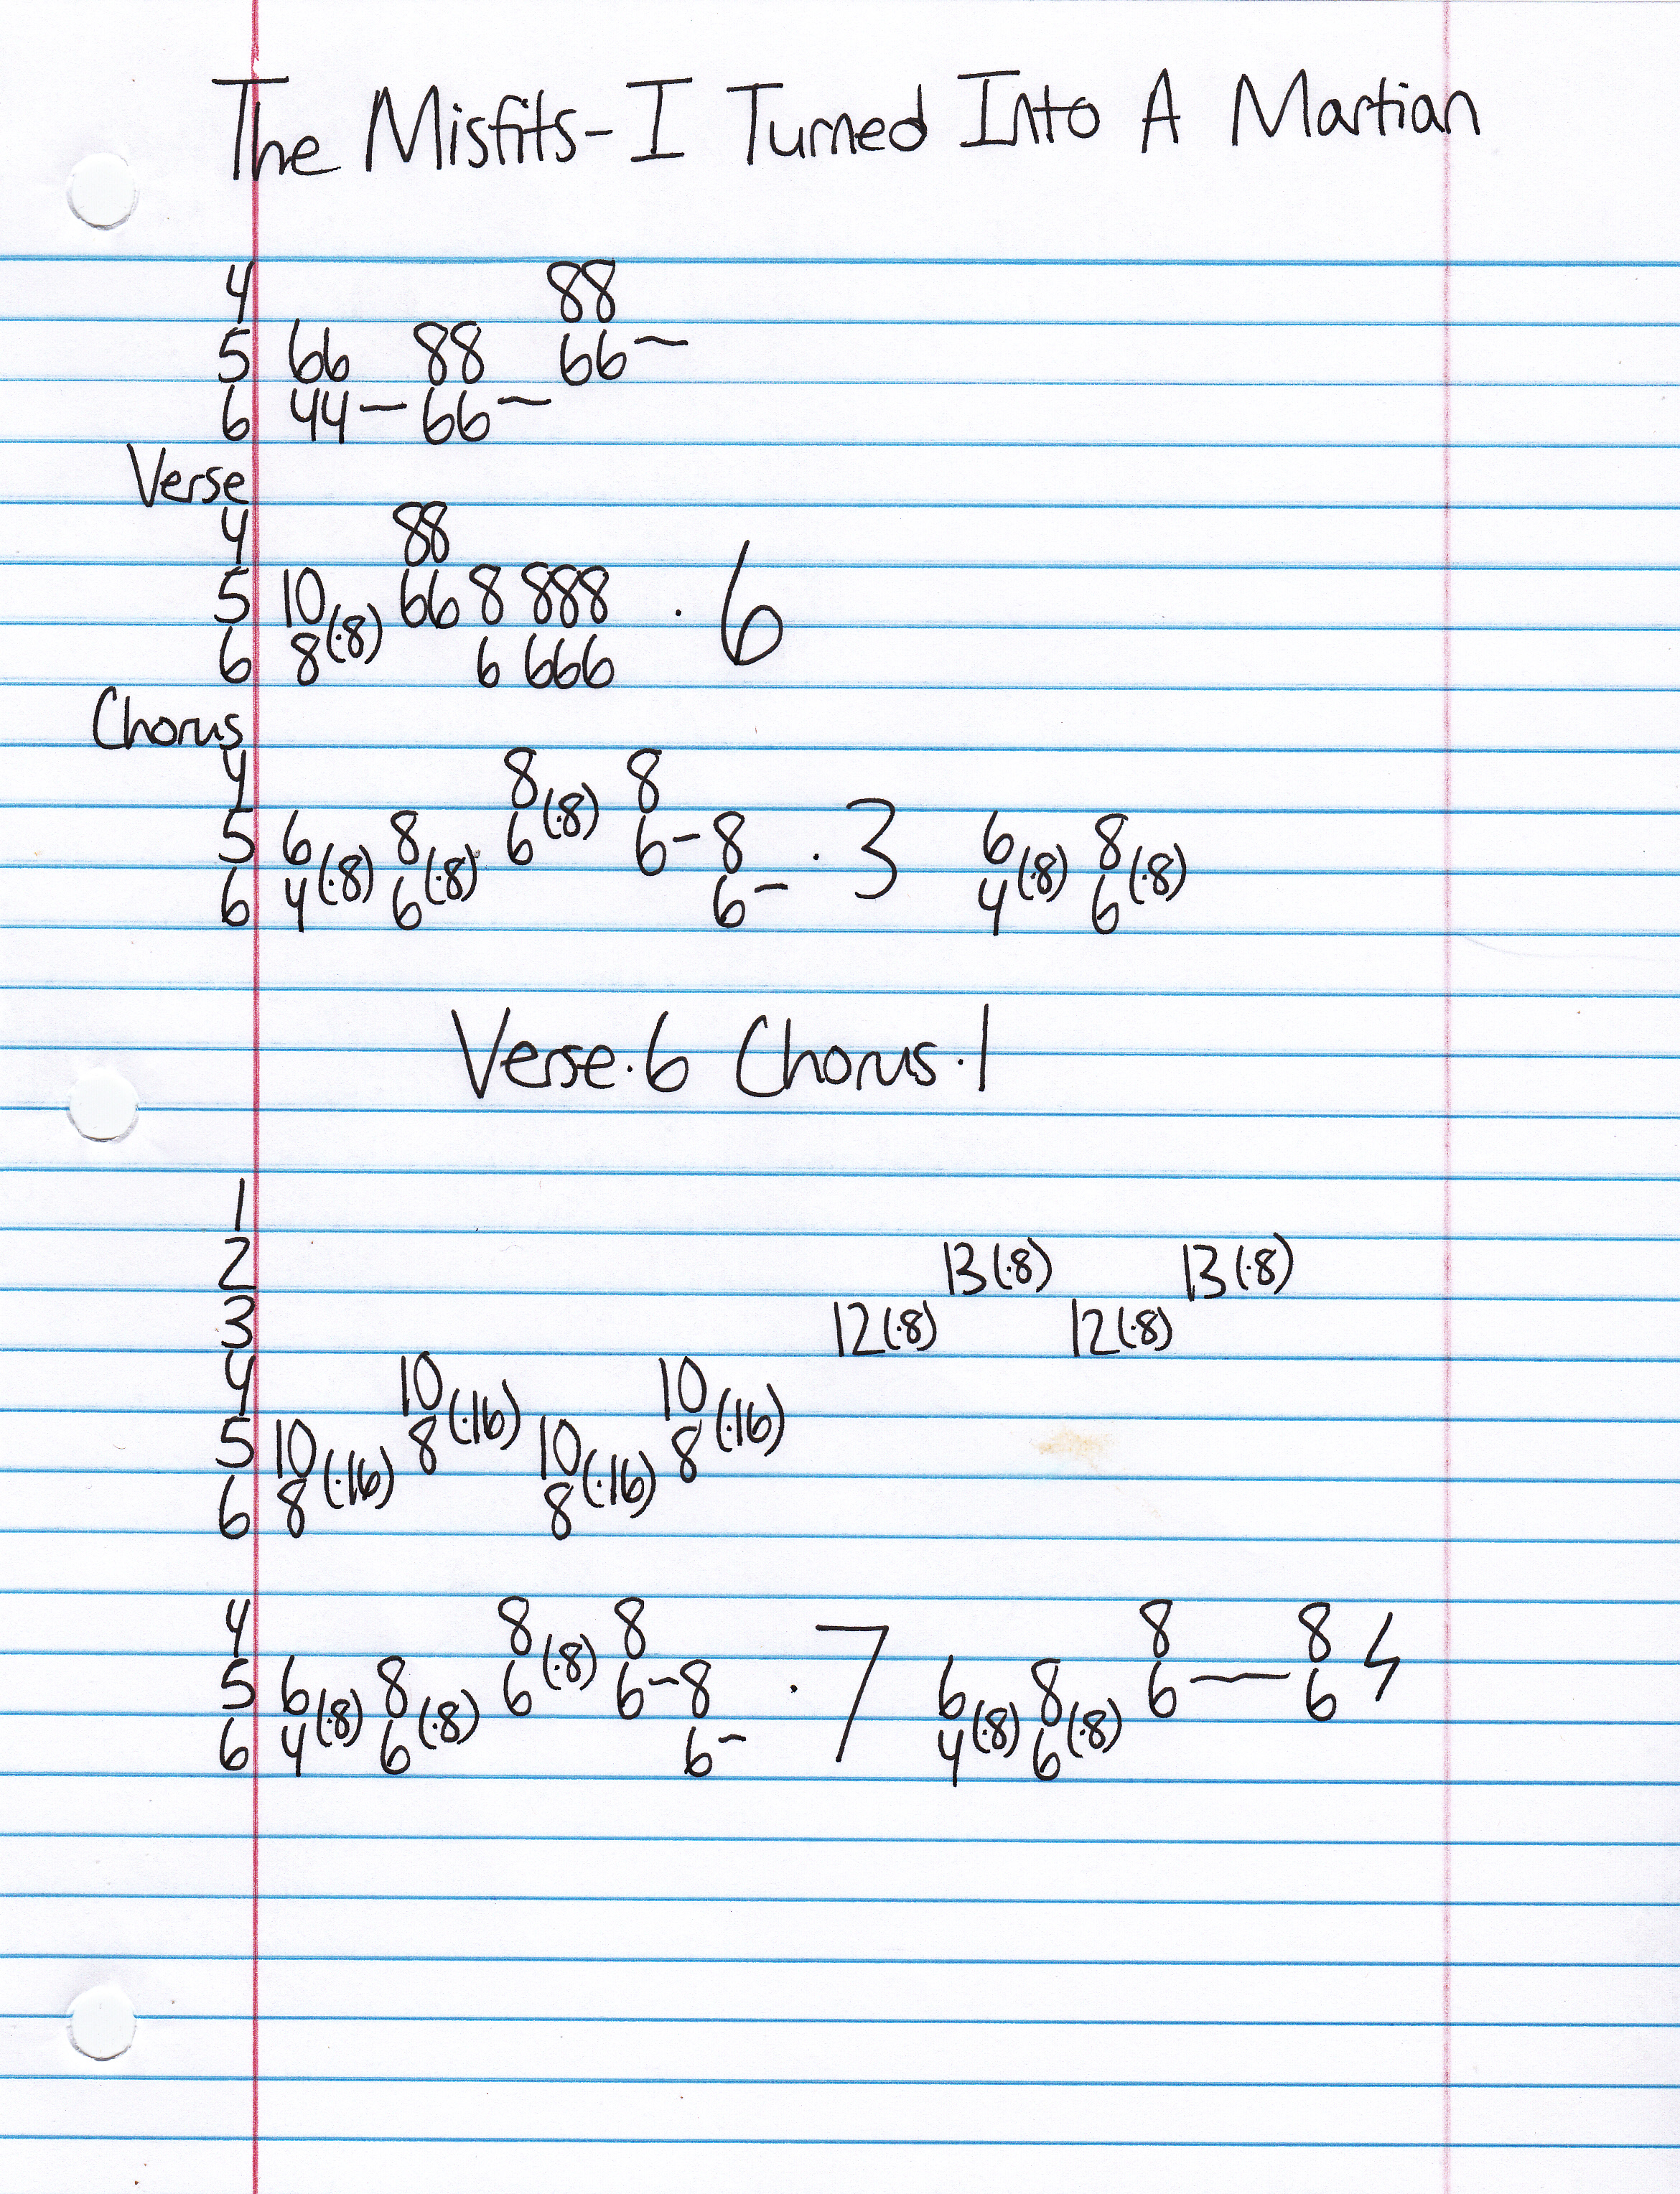 The Misfits- I Turned Into A Martian
4 88
5 66 88 66 —
6 44 — 66 —
Verse
4 88
5 10 66 8 888 · 6
6 8 (·8) 6 666
Chorus
4 8 (·8) 8
5 6 8 6 6 - 8 · 3 6 8
6 4 (·8) 6 (·8) 6 - 4 (·8) 6 (·8)
Verse·6 Chorus·1
1
2 13(·8) 13(·8)
3 12(·8) 12(·8)
4 10 (·16) 10 (·16)
5 10 8 10 8
6 8 (·16) 8 (·16)
4 8 (·8) 8 8 8
5 6 8 6 6 - 8 · 7 6 8 6 — 6
6 4 (·8) 6 (·8) 6 - 4 (·8) 6 (·8)